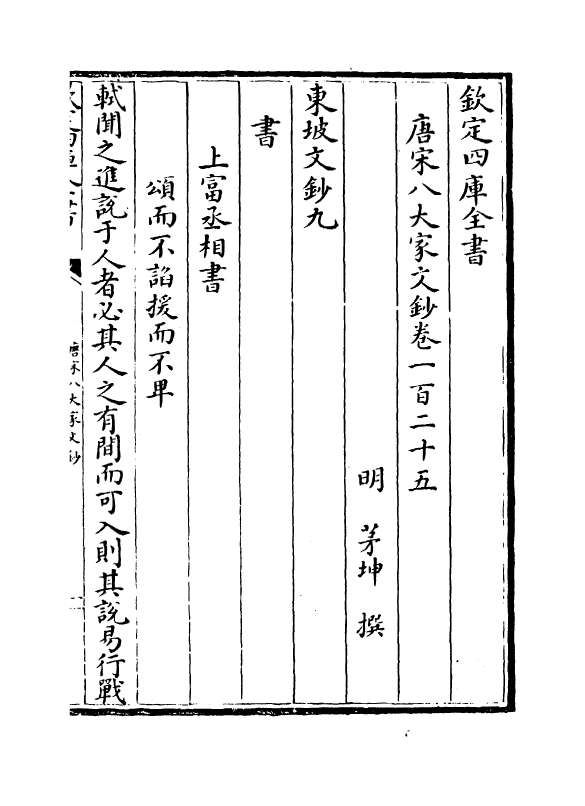 欽定四庫全書
唐宋八大家文鈔卷一百二十五
明　茅坤　撰
東坡文鈔九
書
上富丞相書
頌而不諂援而不卑
軾聞之進說于人者必其人之有間而可入則其說易行戰
唐宋八大家文鈔